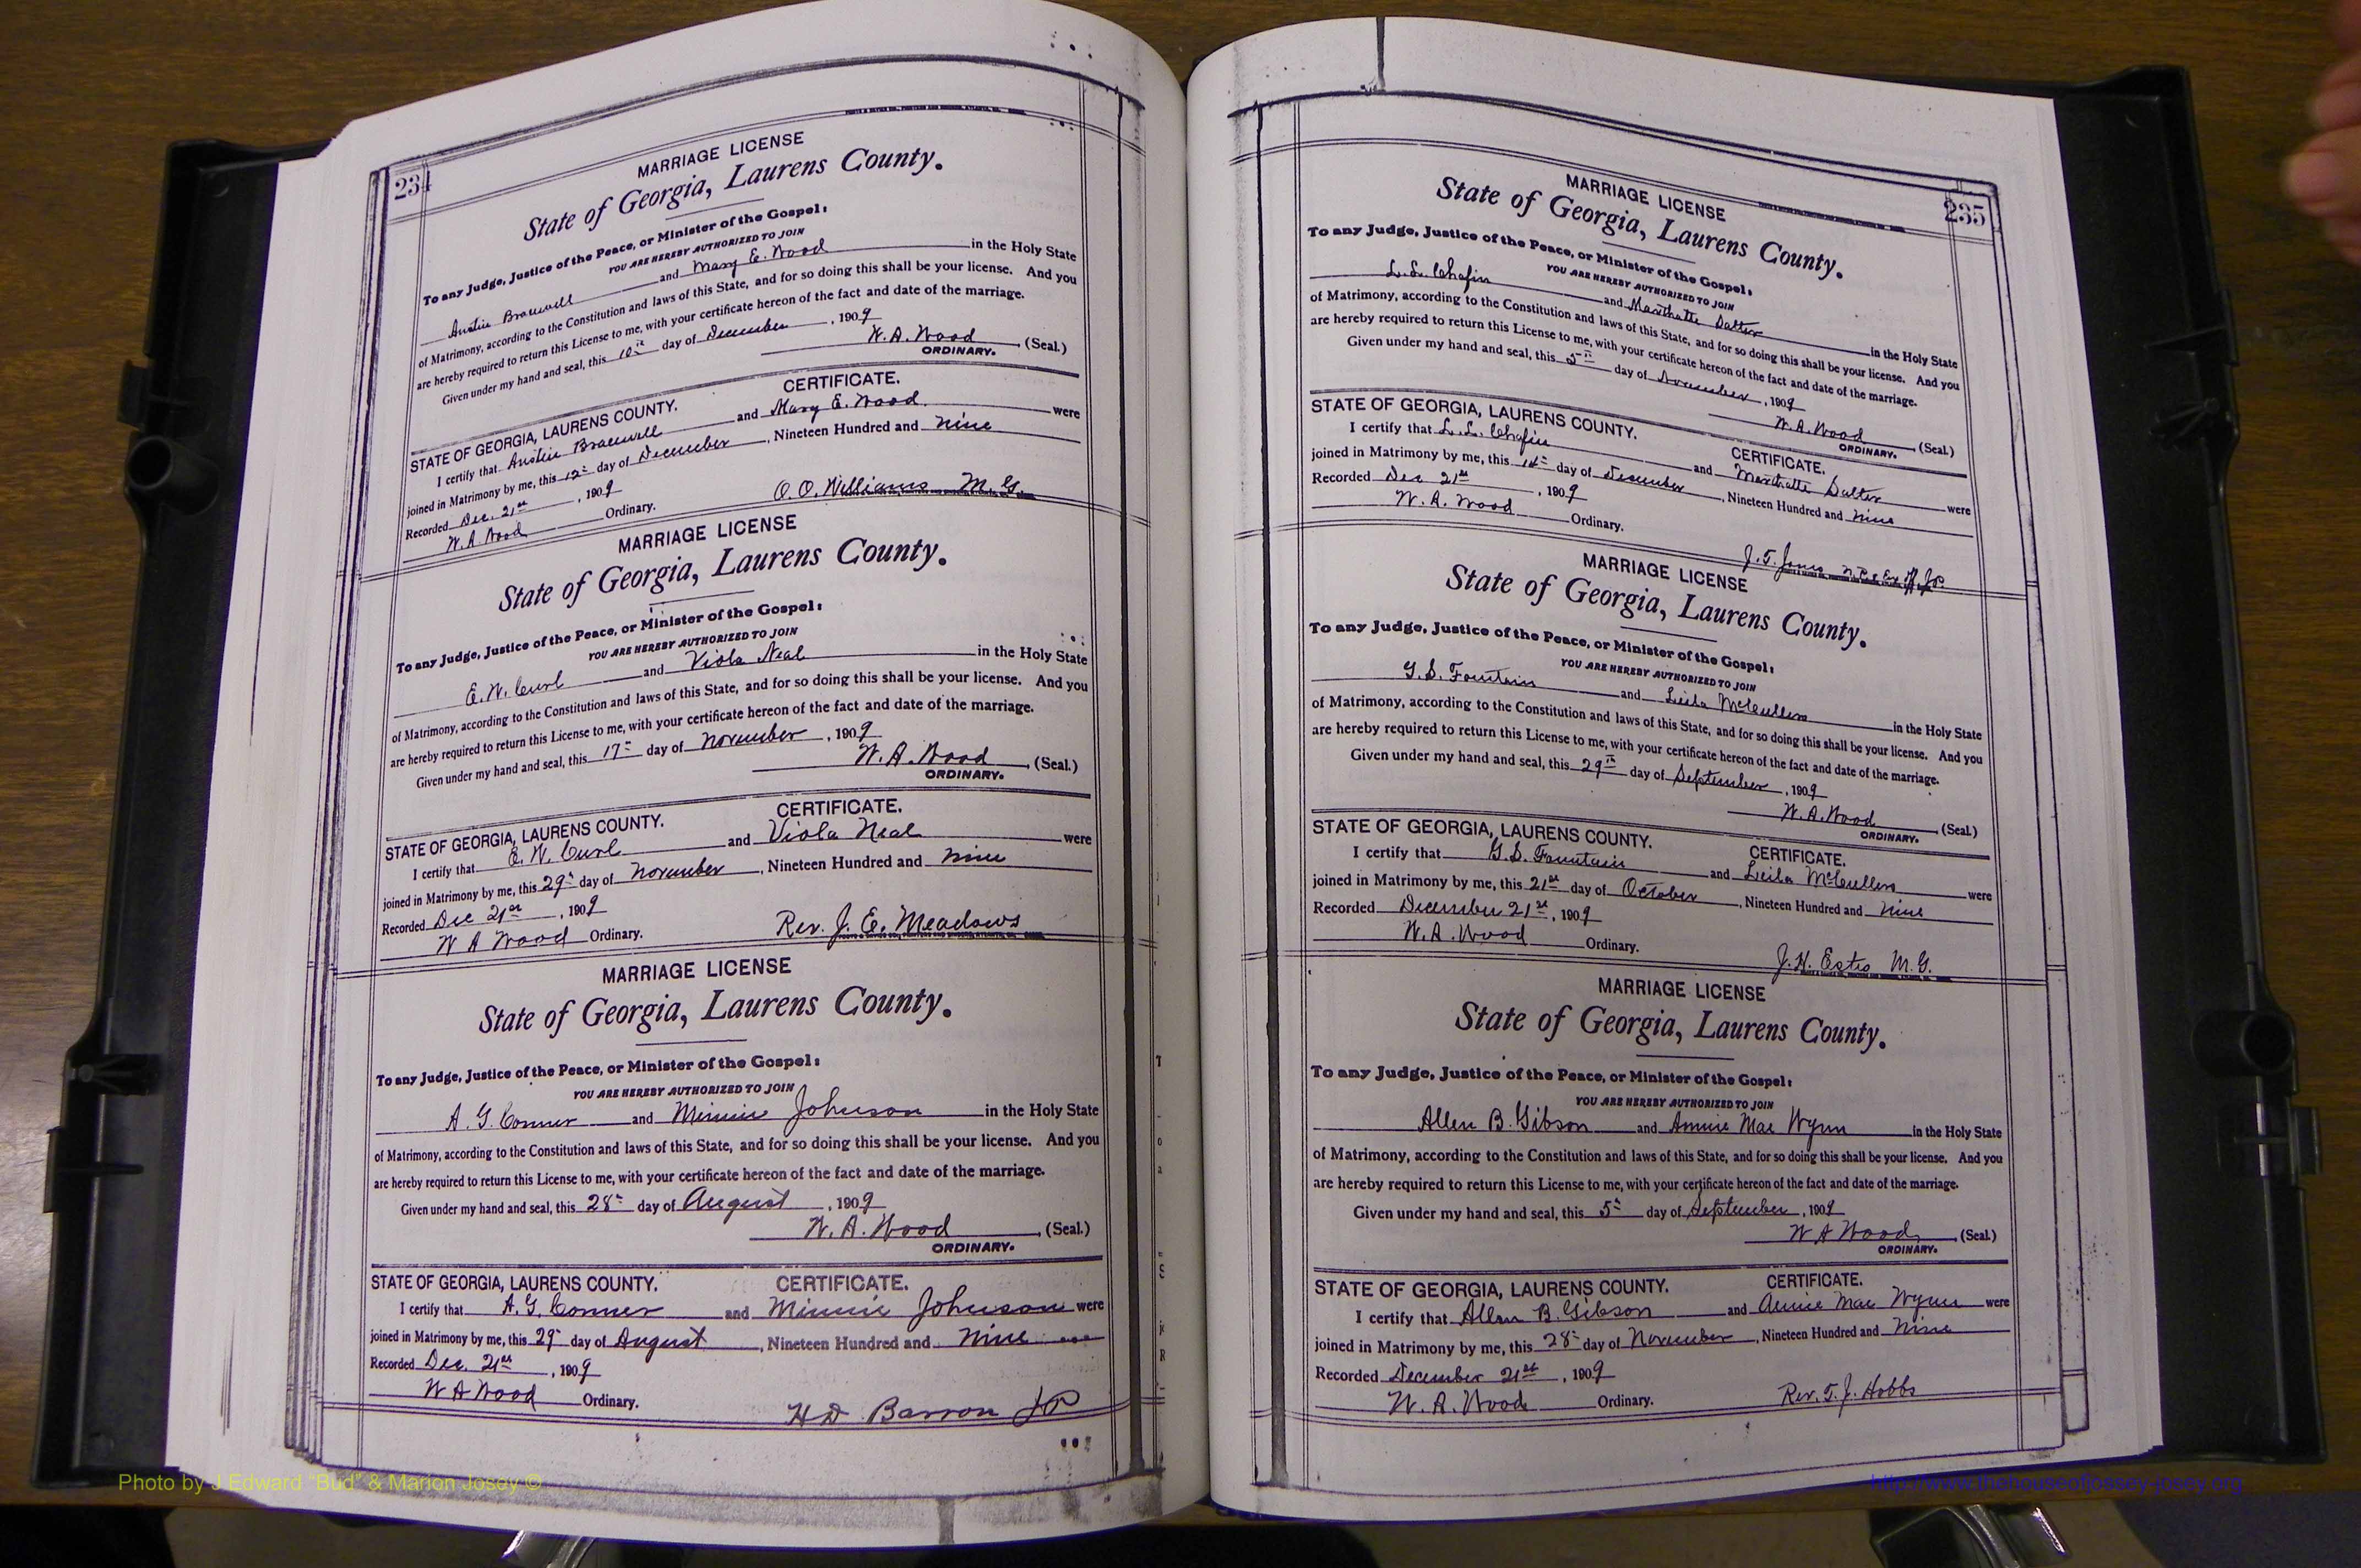 234
MARRIAGE LICENSE
State of Georgia, Laurens County.
To any Judge, Justice of the Peace, or Minister of the Gospel:
YOU ARE HEREBY AUTHORIZED TO JOIN
Austin Bracewell and Mary E. Wood in the Holy State
of Matrimony, according to the Constitution and laws of this State, and for so doing this shall be your license. And you
are hereby required to return this License to me, with your certificate hereon of the fact and date of the marriage.
Given under my hand and seal, this 10th day of December, 1909
W. A. Wood (Seal.)
ORDINARY.
STATE OF GEORGIA, LAURENS COUNTY. CERTIFICATE.
I certify that Austin Bracewell and Mary E. Wood were
joined in Matrimony by me, this 12th day of December, Nineteen Hundred and nine
Recorded Dec. 21st, 1909
W. A. Wood Ordinary. O. O. Williams M. G.
MARRIAGE LICENSE
State of Georgia, Laurens County.
To any Judge, Justice of the Peace, or Minister of the Gospel:
YOU ARE HEREBY AUTHORIZED TO JOIN
E. W. Curl and Viola Neal in the Holy State
of Matrimony, according to the Constitution and laws of this State, and for so doing this shall be your license. And you
are hereby required to return this License to me, with your certificate hereon of the fact and date of the marriage.
Given under my hand and seal, this 17th day of November, 1909
W. A. Wood (Seal.)
ORDINARY.
STATE OF GEORGIA, LAURENS COUNTY. CERTIFICATE.
I certify that E. W. Curl and Viola Neal were
joined in Matrimony by me, this 29th day of November, Nineteen Hundred and nine
Recorded Dec 21st, 1909
W A Wood Ordinary. Rev. J. E. Meadows
MARRIAGE LICENSE
State of Georgia, Laurens County.
To any Judge, Justice of the Peace, or Minister of the Gospel:
YOU ARE HEREBY AUTHORIZED TO JOIN
A. G. Conner and Minnie Johnson in the Holy State
of Matrimony, according to the Constitution and laws of this State, and for so doing this shall be your license. And you
are hereby required to return this License to me, with your certificate hereon of the fact and date of the marriage.
Given under my hand and seal, this 28th day of August, 1909
W. A. Wood (Seal.)
ORDINARY.
STATE OF GEORGIA, LAURENS COUNTY. CERTIFICATE.
I certify that A. G. Conner and Minnie Johnson were
joined in Matrimony by me, this 29th day of August, Nineteen Hundred and nine
Recorded Dec. 21st, 1909
W A Wood Ordinary. H D Barron JP
235
MARRIAGE LICENSE
State of Georgia, Laurens County.
To any Judge, Justice of the Peace, or Minister of the Gospel:
YOU ARE HEREBY AUTHORIZED TO JOIN
L. L. Chafin and in the Holy State
of Matrimony, according to the Constitution and laws of this State, and for so doing this shall be your license. And you
are hereby required to return this License to me, with your certificate hereon of the fact and date of the marriage.
Given under my hand and seal, this 5th day of November, 1909
W. A. Wood (Seal.)
ORDINARY.
STATE OF GEORGIA, LAURENS COUNTY. CERTIFICATE.
I certify that L. L. Chafin and were
joined in Matrimony by me, this day of December, Nineteen Hundred and nine
Recorded Dec 21st, 1909
W. A. Wood Ordinary. J. T. Jones
MARRIAGE LICENSE
State of Georgia, Laurens County.
To any Judge, Justice of the Peace, or Minister of the Gospel:
YOU ARE HEREBY AUTHORIZED TO JOIN
G. S. Fountain and Leila McCullers in the Holy State
of Matrimony, according to the Constitution and laws of this State, and for so doing this shall be your license. And you
are hereby required to return this License to me, with your certificate hereon of the fact and date of the marriage.
Given under my hand and seal, this 29th day of September, 1909
W. A. Wood (Seal.)
ORDINARY.
STATE OF GEORGIA, LAURENS COUNTY. CERTIFICATE.
I certify that G. S. Fountain and Leila McCullers were
joined in Matrimony by me, this 21st day of October, Nineteen Hundred and nine
Recorded December 21st, 1909
W. A. Wood Ordinary. J. H. Estes M. G.
MARRIAGE LICENSE
State of Georgia, Laurens County.
To any Judge, Justice of the Peace, or Minister of the Gospel:
YOU ARE HEREBY AUTHORIZED TO JOIN
Allen B. Gibson and Annie Mae Wynn in the Holy State
of Matrimony, according to the Constitution and laws of this State, and for so doing this shall be your license. And you
are hereby required to return this License to me, with your certificate hereon of the fact and date of the marriage.
Given under my hand and seal, this 5th day of September, 1909
W A Wood, (Seal.)
ORDINARY.
STATE OF GEORGIA, LAURENS COUNTY. CERTIFICATE.
I certify that Allen B. Gibson and Annie Mae Wynn were
joined in Matrimony by me, this 28th day of November, Nineteen Hundred and nine
Recorded December 21st, 1909
W. A. Wood Ordinary. Rev. T. J. Hobbs
Photo by J Edward "Bud" & Marion Josey ©
http://www.thehouseofjossey-josey.org